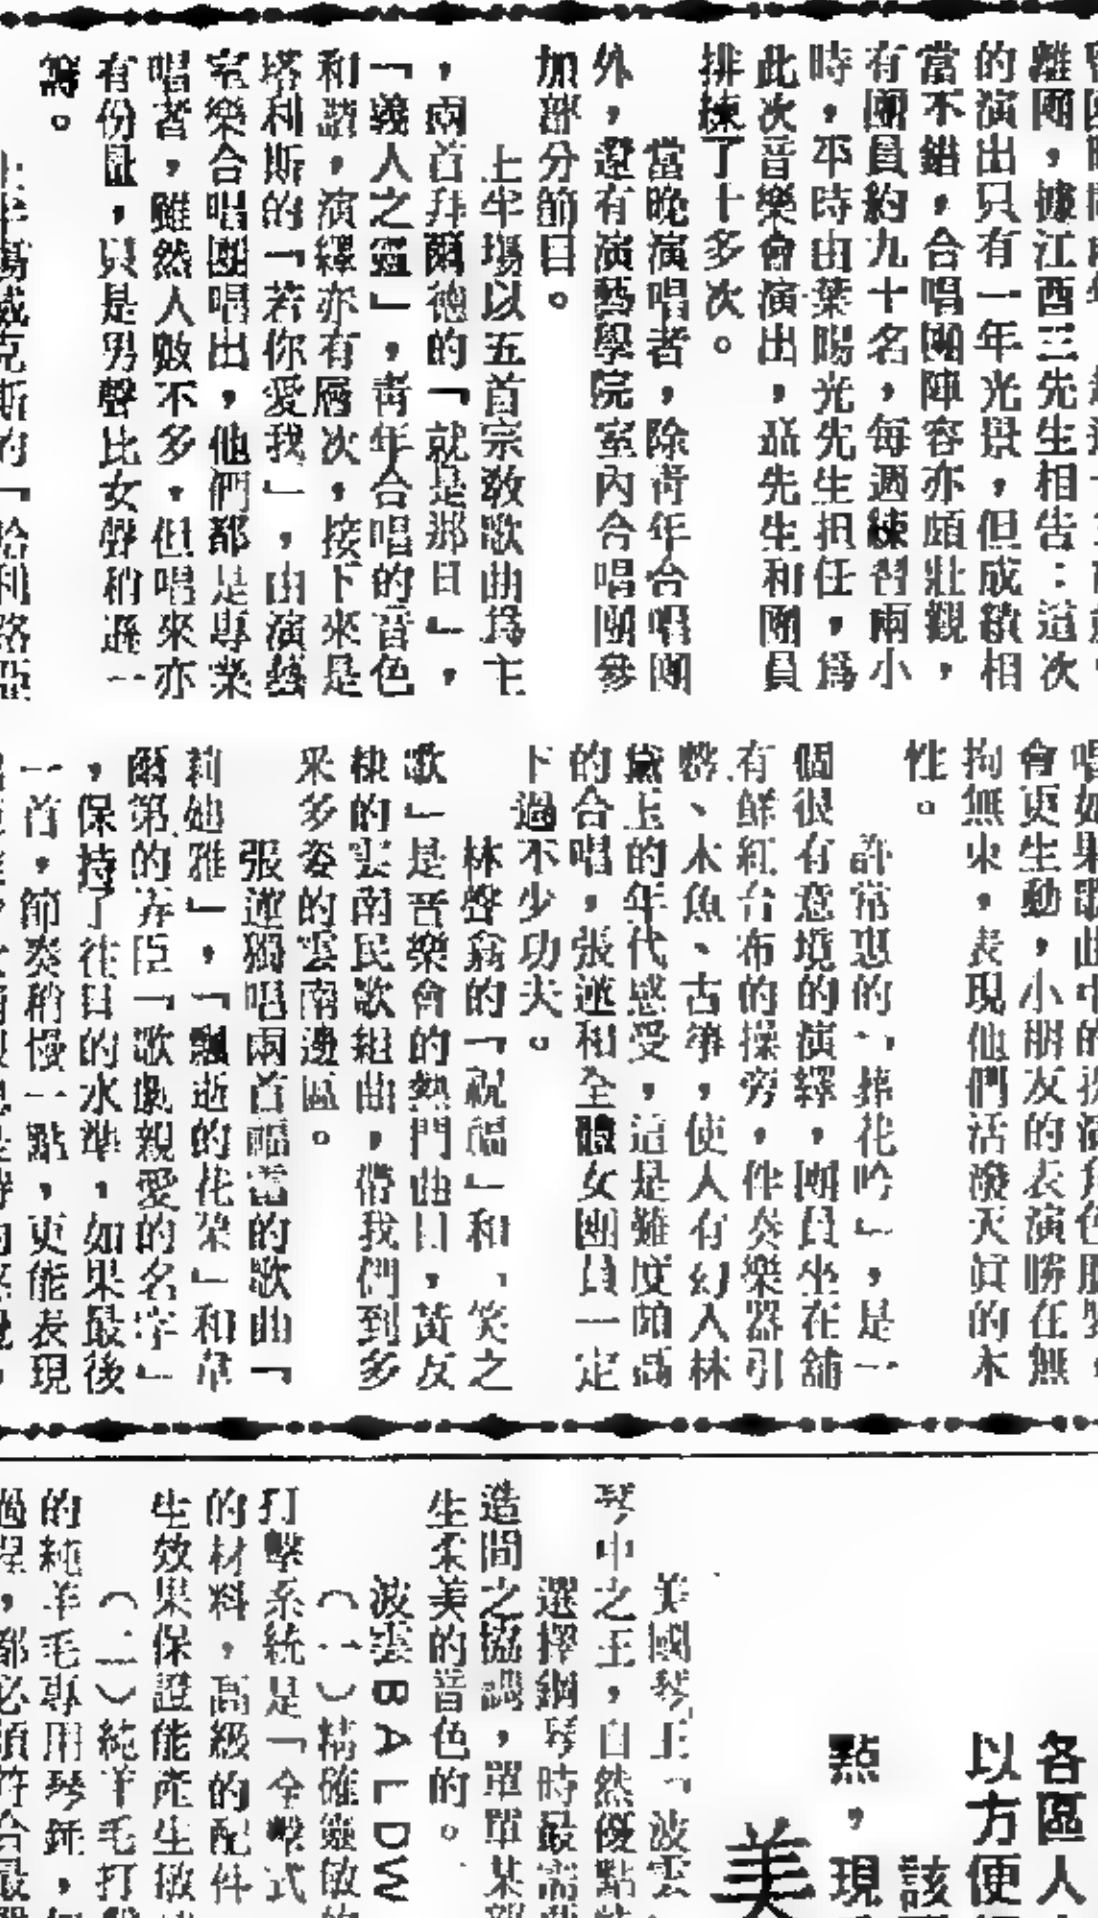 離團，據江酉三先生相告：這次
的演出只有一年光景，但成績相
當不錯，合唱團陣容亦頗壯觀，
有團員約九十名，每週練習兩小
時，平時由葉暘光先生担任，爲
此次音樂會演出，聶先生和團員
排練了十多次。
當晚演唱者，除青年合唱團
外，還有演藝學院室內合唱團參
加部分節目。
上半場以五首宗敎歌曲爲主
，兩首拜爾德的「就是那日」，
「義人之靈」，靑年合唱的音色
和諧，演繹亦有層次，接下來是
塔利斯的「若你愛我」，由演藝
室樂合唱團唱出，他們都是專業
唱者，雖然人數不多，但唱來亦
有份量，只是男聲比女聲稍遜一
籌。
上半場威克斯的「哈利路亞
會更生動，小朋友的表演勝在無
拘無束，表現他們活潑天眞的本
性。
許常惠的「葬花吟」，是一
個很有意境的演繹，團員坐在舖
有鮮紅台布的操旁，伴奏樂器引
磬、木魚、古箏，使人有幻入林
黛玉的年代感受，這是難度頗高
的合唱，張蓮和全體女團員一定
下過不少功夫。
林聲翕的「祝福」和「笑之
歌」是音樂會的熱門曲目，黃友
棣的雲南民歌組曲，帶我們到多
釆多姿的雲南邊區。
張蓮獨唱兩首福雷的歌曲「
莉她雅」，「飄逝的花朶」和韋
爾第的弄臣「歌劇親愛的名字」
，保持了往日的水準，如果最後
一首，節奏稍慢一點，更能表現
各區人
以方便
該
點，現
美
美國琴王「波雲
琴中之王，自然優點
選擇鋼琴時最需
造間之協調，單單某
生柔美的音色的。
波雲BALDW
（一）精確靈敏的
打擊系統是「全擊式
的材料，高級的配件
生效果保證能產生敏
（二）純羊毛打
的純羊毛專用琴鎚，
過程，都必須符合最